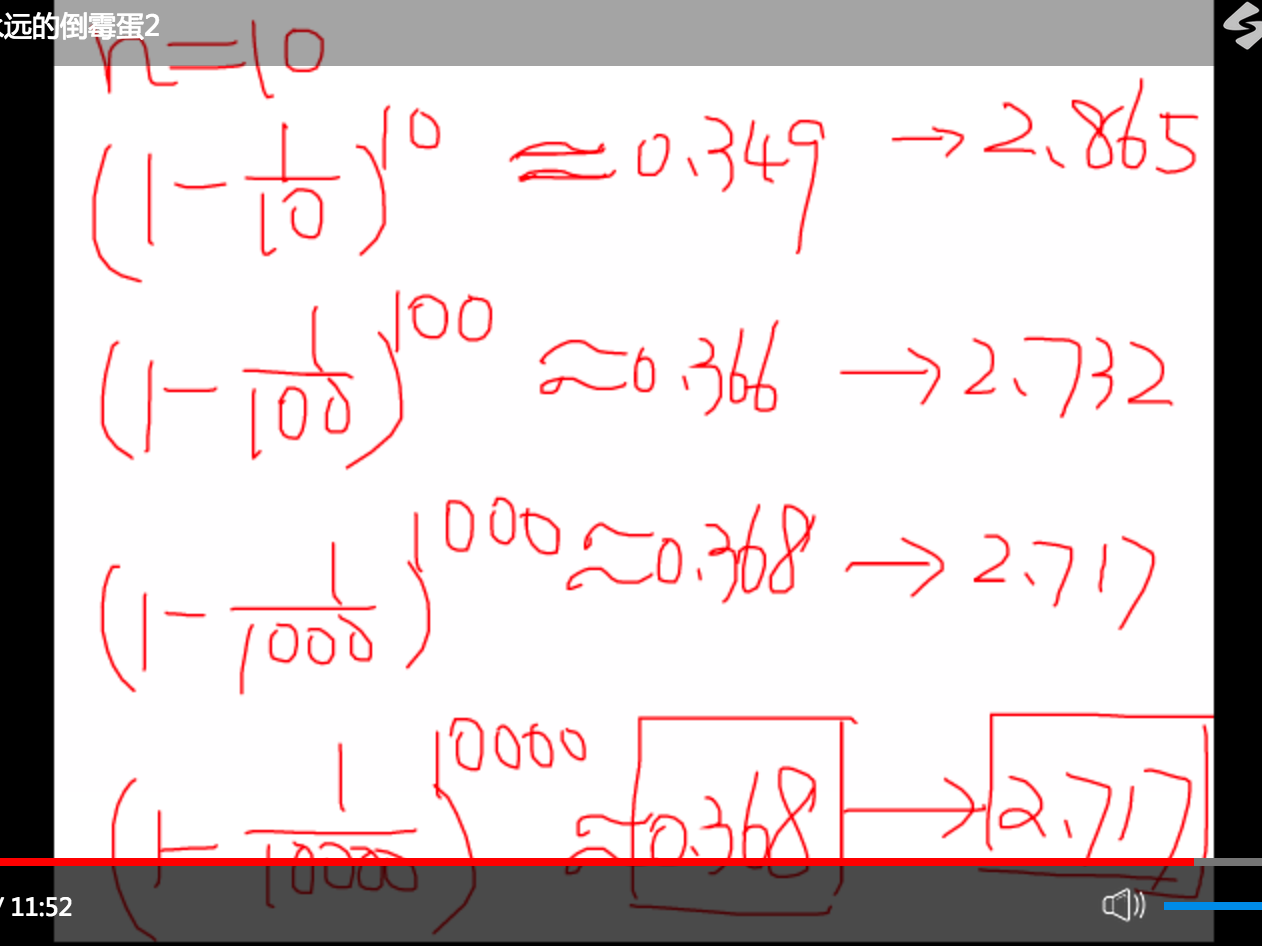 永远的倒霉蛋2
n=10
(1-1/10)^10 ≈0.349 →2.865
(1-1/100)^100 ≈0.366 →2.732
(1-1/1000)^1000 ≈0.368 →2.717
(1-1/10000)^10000 ≈0.368 →2.717
/ 11:52